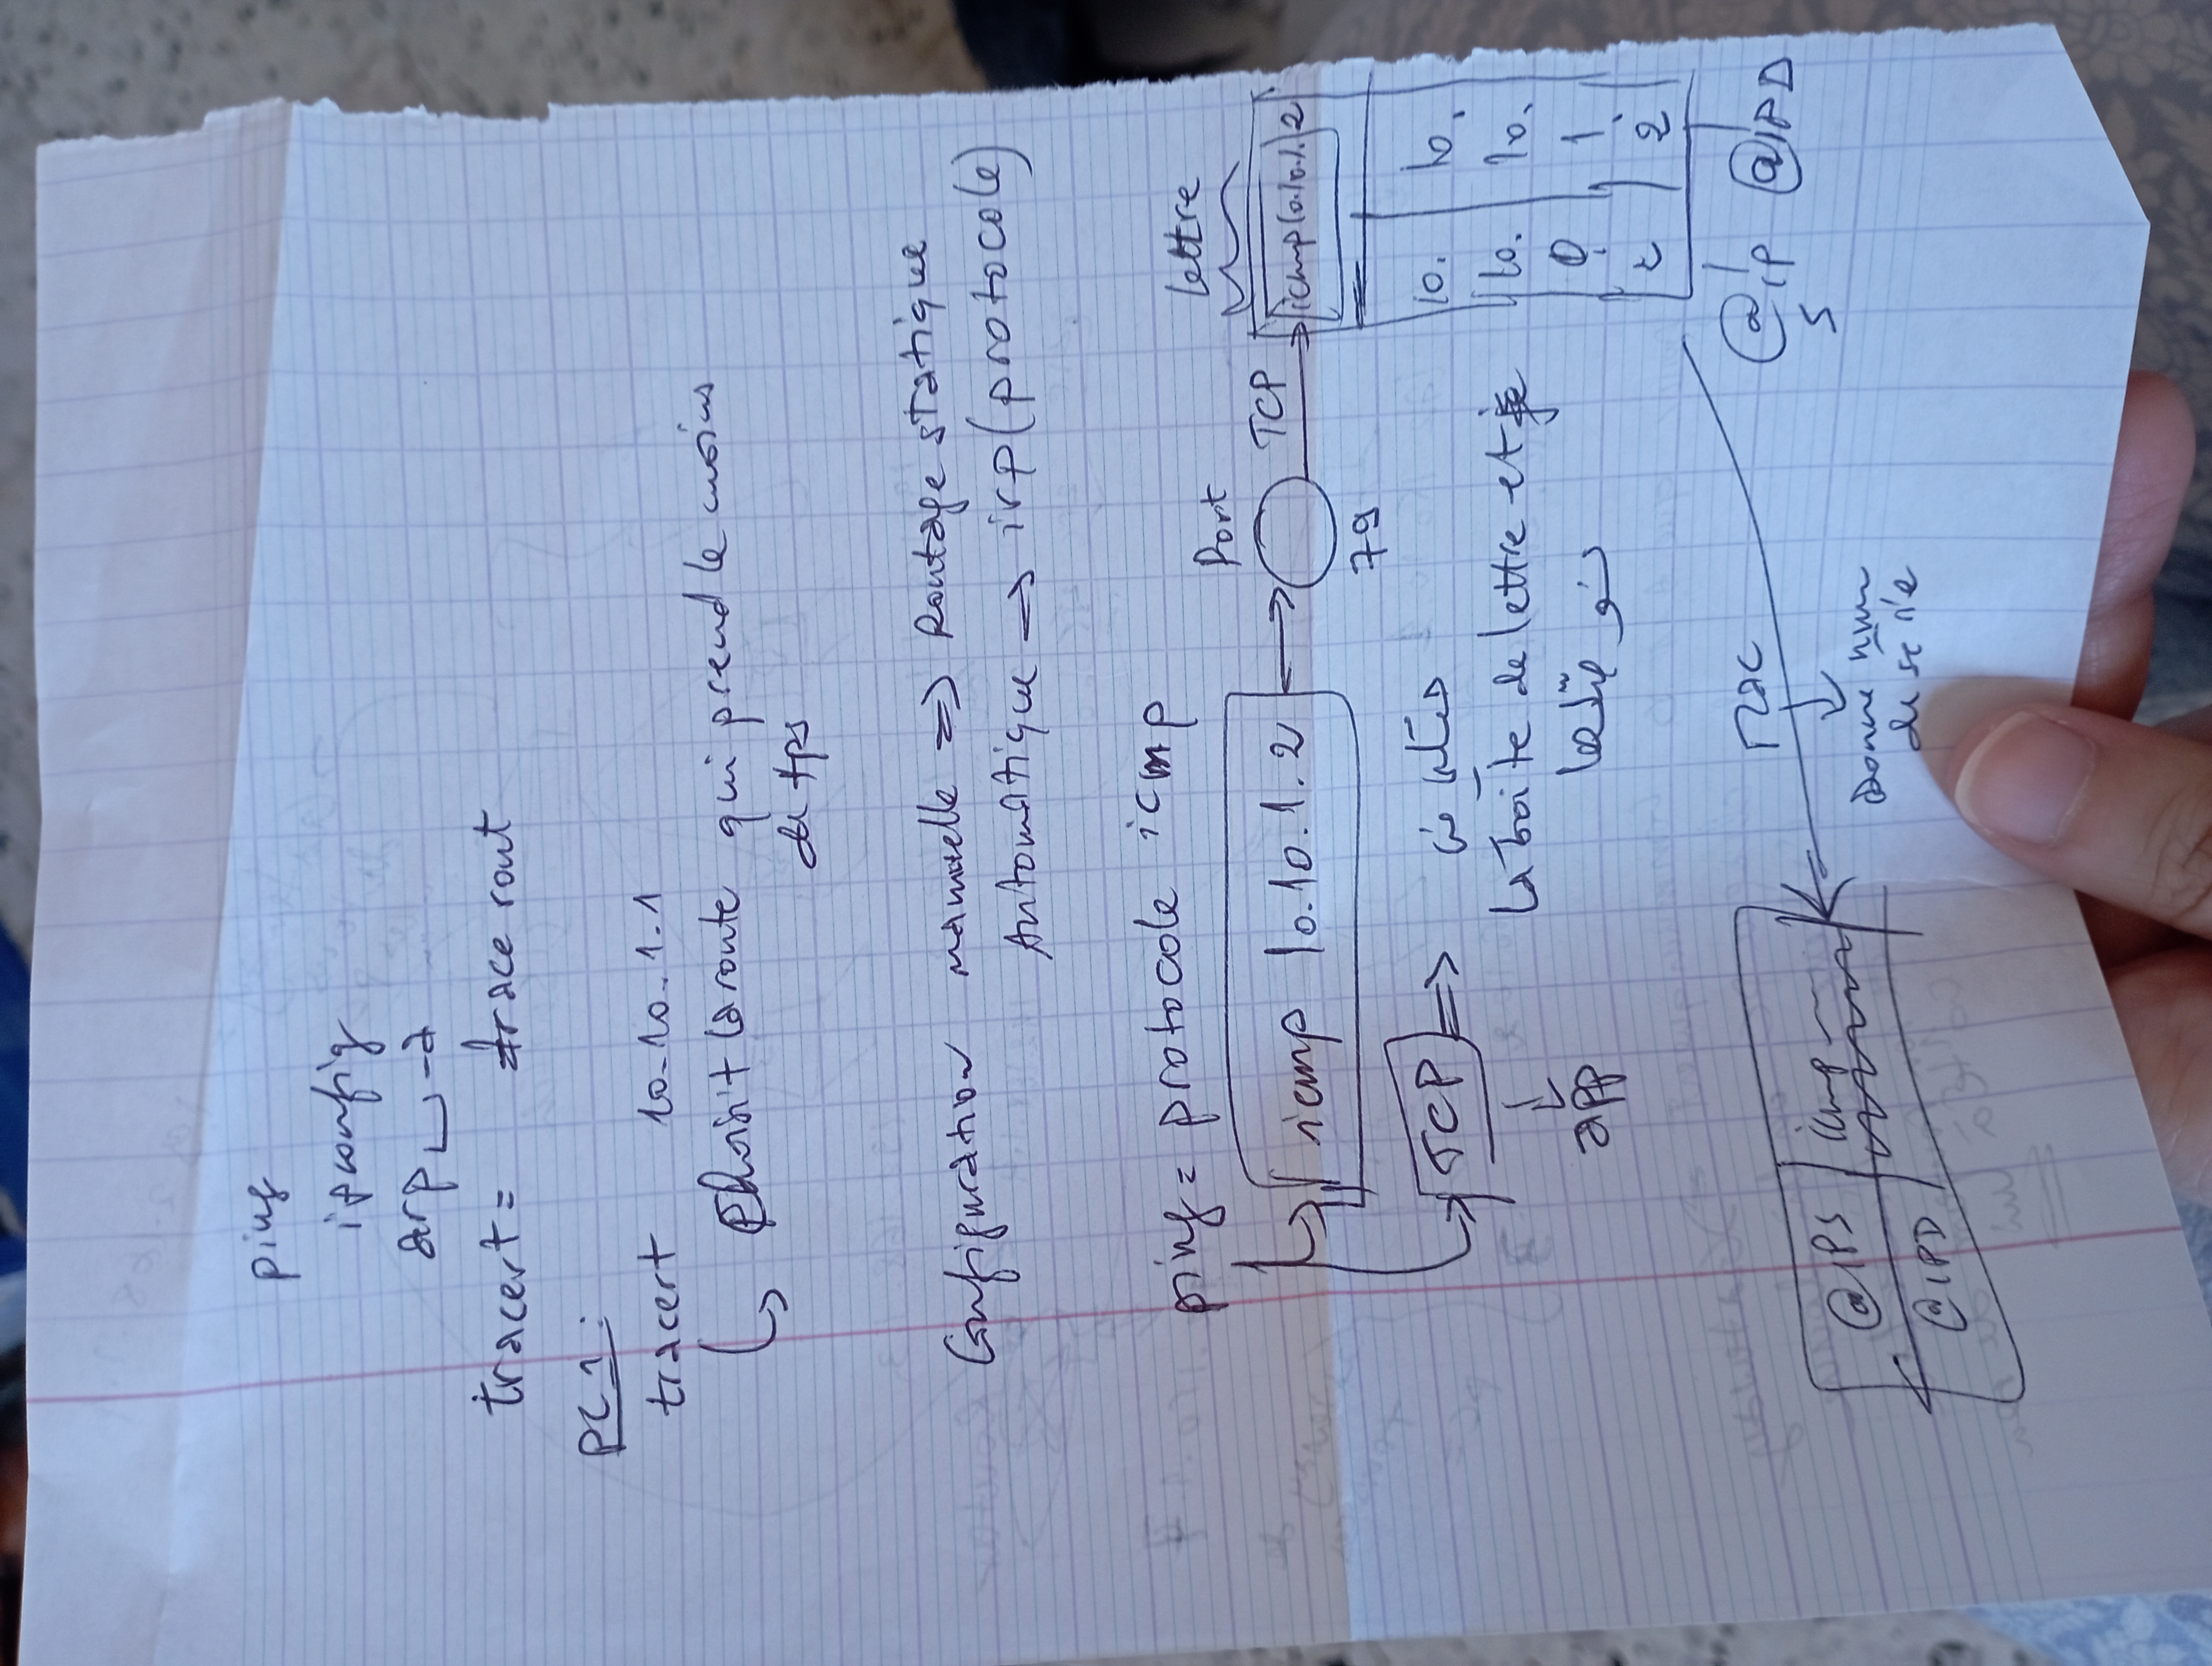 ping
ipconfig
arp ␣ -a
tracert = trace rout
PC1:
tracert 10.10.1.1
Choisit la route qui prend le moins
de tps
Configuration manuelle => Routage statique
Automatique => irp (protocole)
ping = protocole icmp
lettre
Port
icmp 10.10.1.2
TCP
icmp 10.10.1.2
79
TCP =>
10. 10.
la boite de lettre et
10. 10.
app
0. 1.
2
@IP S @IPD
Mac
@IPS icmp
Donne num
de série
@IPD